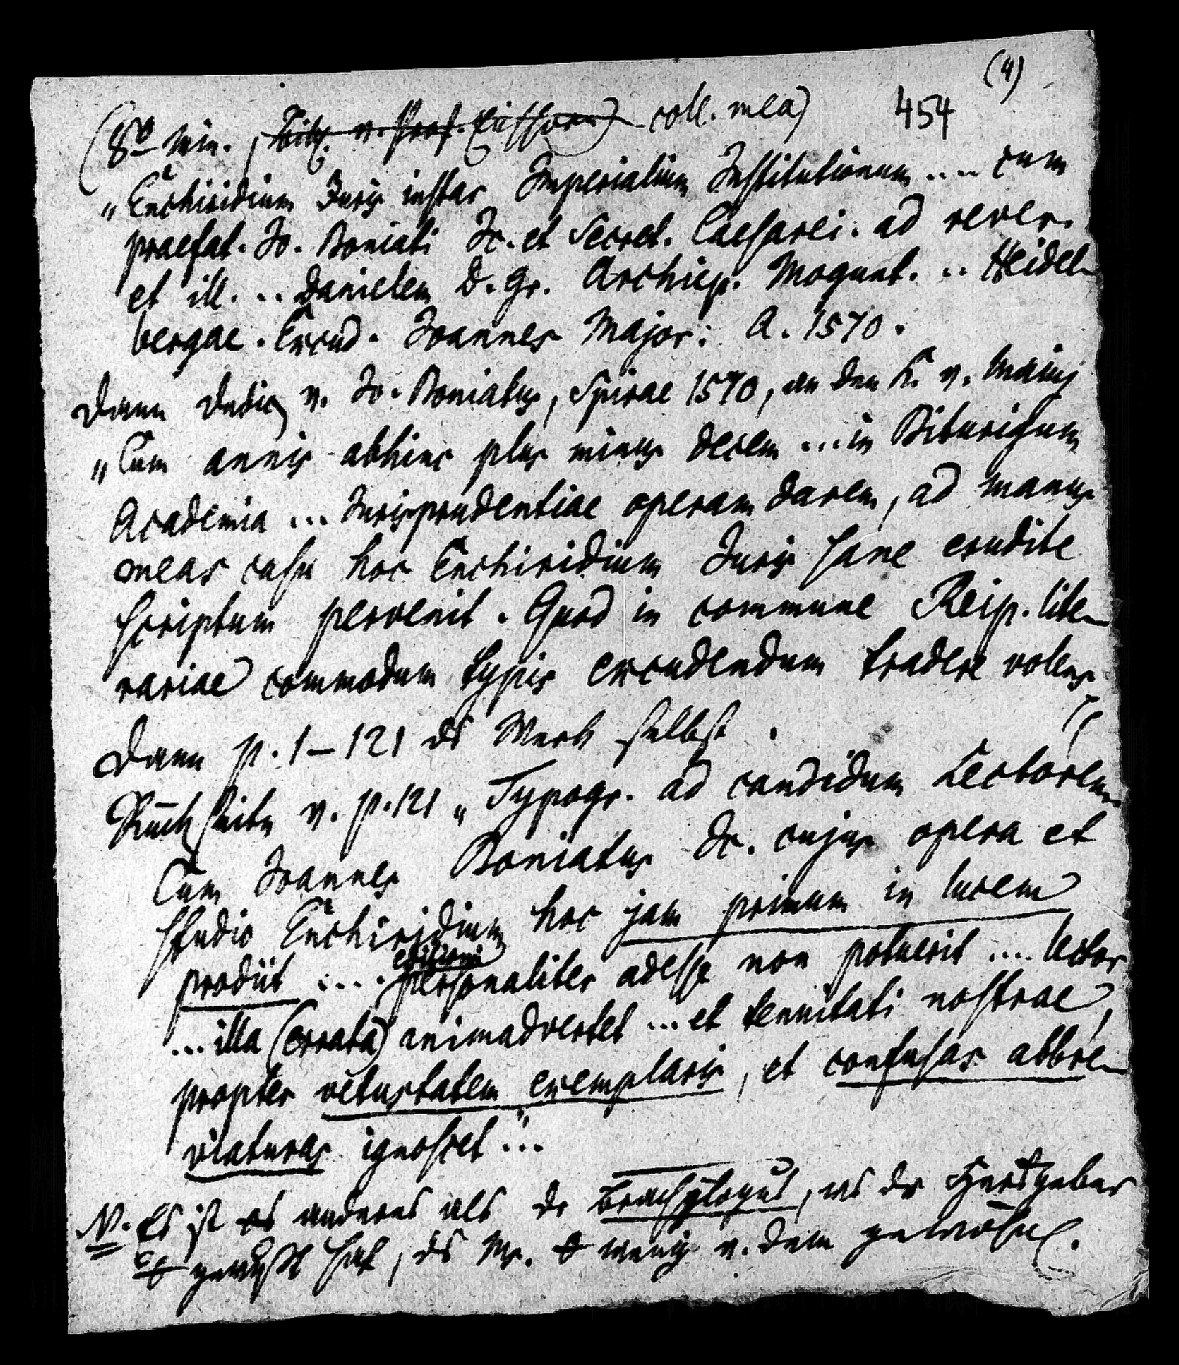 (4)
454
(8º min. Bibl. v. Prof. coll. mea)
„Enchiridium Juris instar Imperialium Institutionum .... cum
praefat. Jo. Boniati Jc. et Secret. Caesarei. ad rever.
et ill. .. Danielem D. gr. Archiep. Mogunt. .. Heidel-
bergae. Excud. Joannes Major: A. 1570.
Dann v. Jo. Boniatus, Spirae 1570, an den K. v. Mainz
„Cum annis abhinc plus minus decem ... in Biturigum
Academia ... Jurisprudentiae operam darem, ad manus
meas casu hoc Enchiridium Juris sane erudite
scriptum pervenit. Quod in commune Reip. lite-
rariae commodum typis excudendum tradere volens
Dann p. 1–121 ds Werk selbst.
Rückseite v. p. 121 „Typogr. ad candidum Lectorem
Cum Joannes Boniatus Jc. cujus opera et
studio Enchiridium hoc jam primum in lucem
prodiit .... editioni personaliter adesse non potuerit .... lector
... illa (errata) animadvertet ... et tenuitati nostrae,
propter vetustatem exemplaris, et confusas abbre-
viaturas ignoscet"...
N. Es ist anderes als de Brachylogus, ws dr Hersgeber
gewußt hat, ds Mr. wenig v. dem